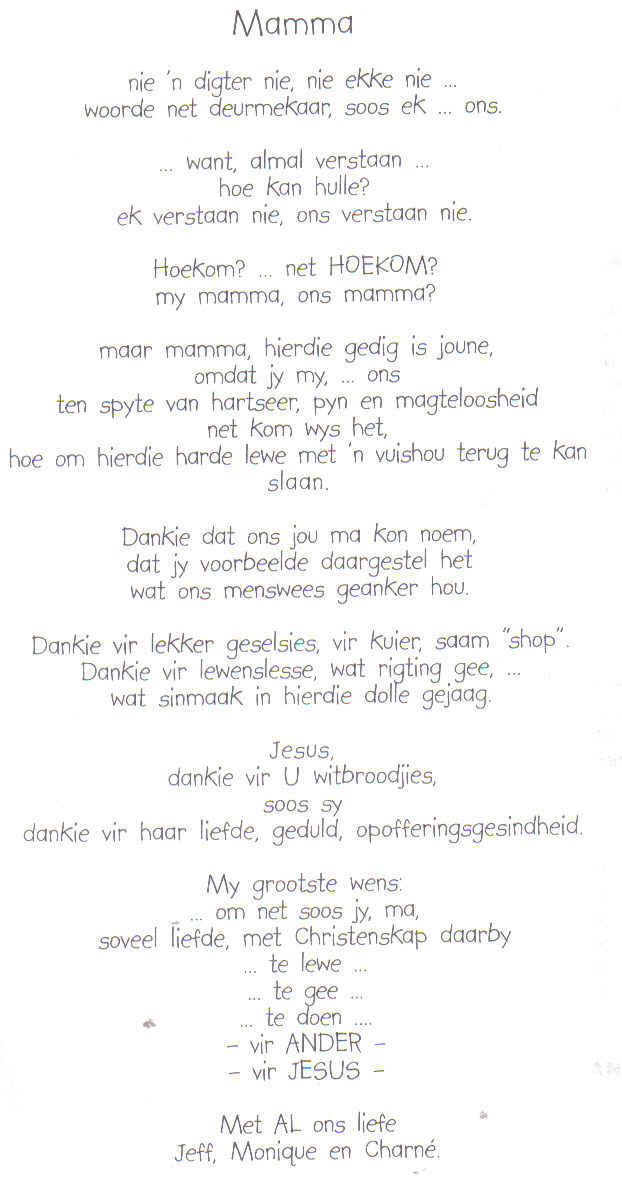 Mamma
nie 'n digter nie, nie ekke nie ...
woorde net deurmekaar, soos ek ... ons.
... want, almal verstaan ...
hoe kan hulle?
ek verstaan nie, ons verstaan nie.
Hoekom? ... net HOEKOM?
my mamma, ons mamma?
maar mamma, hierdie gedig is joune,
omdat jy my, ... ons
ten spyte van hartseer, pyn en magteloosheid
net kom wys het,
hoe om hierdie harde lewe met 'n vuishou terug te kan
slaan.
Dankie dat ons jou ma kon noem,
dat jy voorbeelde daargestel het
wat ons menswees geanker hou.
Dankie vir lekker geselsies, vir kuier, saam "shop".
Dankie vir lewenslesse, wat rigting gee, ...
wat sinmaak in hierdie dolle gejaag.
Jesus,
dankie vir U witbroodjies,
soos sy
dankie vir haar liefde, geduld, opofferingsgesindheid.
My grootste wens:
... om net soos jy, ma,
soveel liefde, met Christenskap daarby
... te lewe ...
... te gee ...
... te doen ....
- vir ANDER -
- vir JESUS -
Met AL ons liefe
Jeff, Monique en Charné.